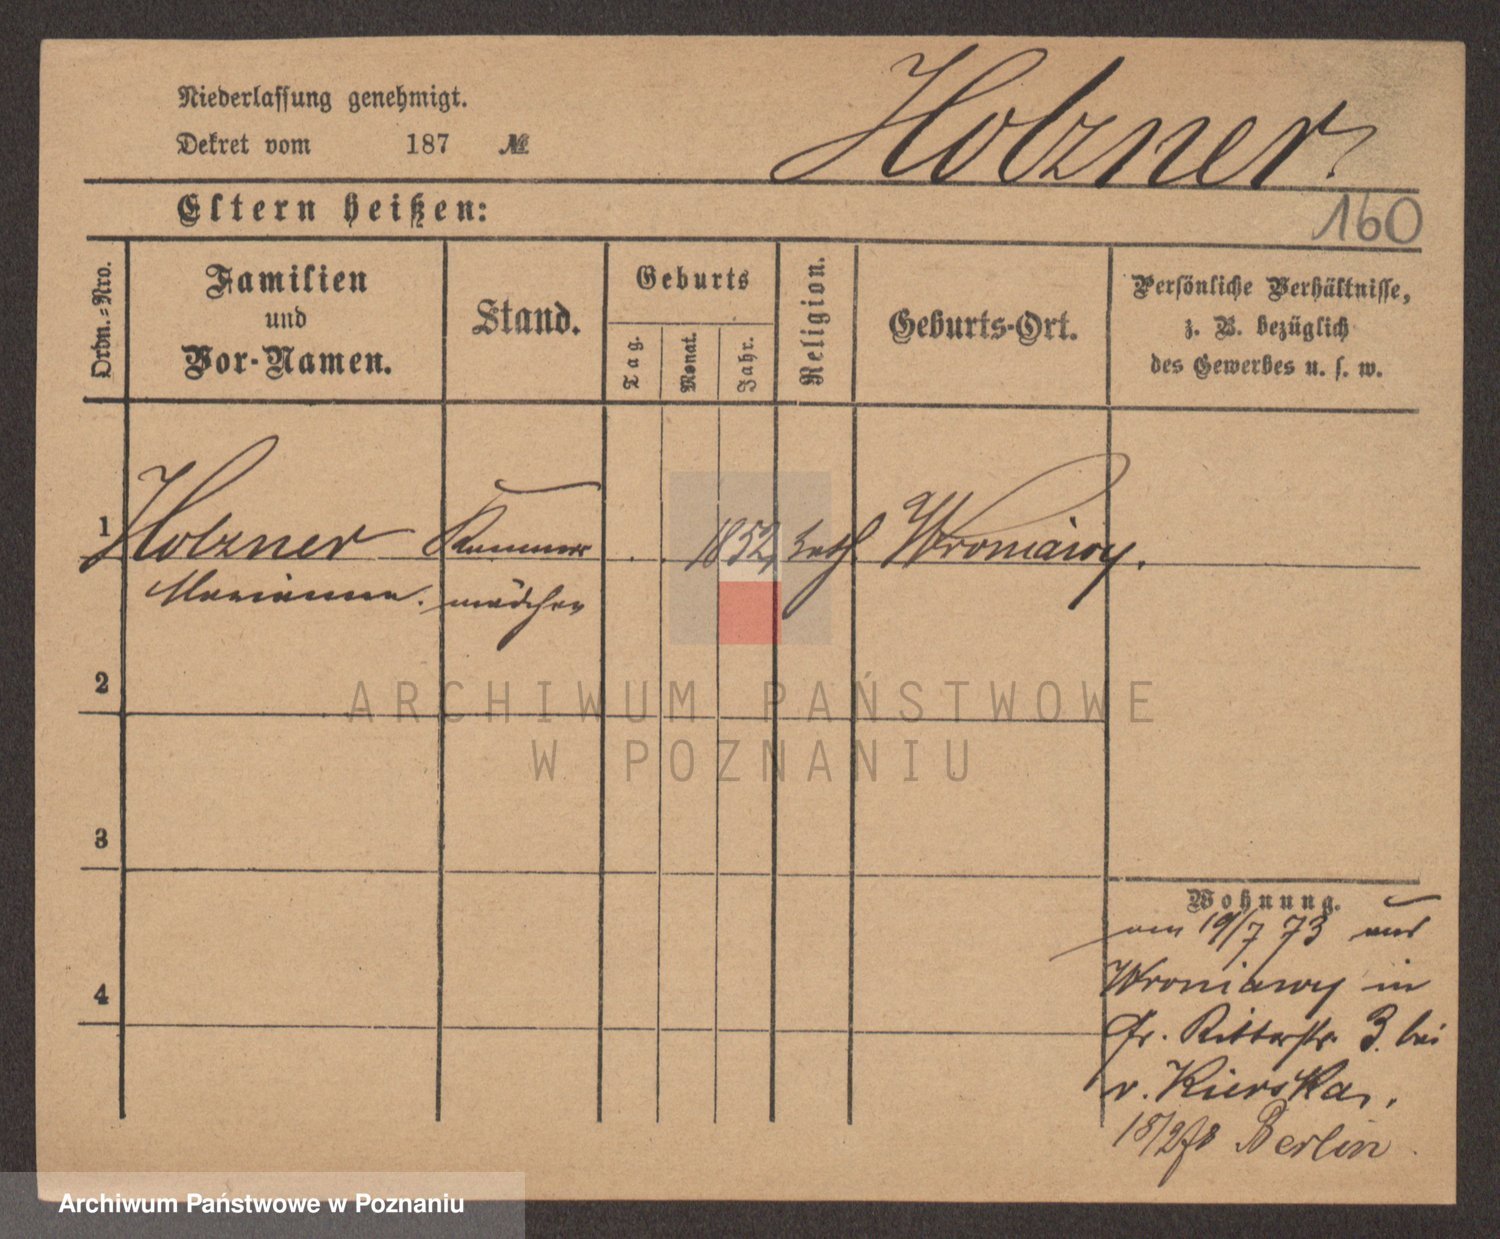 Niederlassung genehmigt.
Dekret vom 187 №
Holzner.
160
Eltern heißen:
Ordn.-Nro.
Familien
und
Vor-Namen.
Stand.
Geburts
Tag.
Monat.
Jahr.
Religion.
Geburts-Ort.
Persönliche Verhältnisse,
z. B. bezüglich
des Gewerbes u. s. w.
1 Holzner Kammer 1852, kath. Wroniawy.
Marianna. mädchen
2
3
4
Wohnung.
am 19/7 73 aus
Wroniawy in
Gr. Ritterstr. 3. bei
v. Kierska.
18/2 78 Berlin
ARCHIWUM PAŃSTWOWE
W POZNANIU
Archiwum Państwowe w Poznaniu